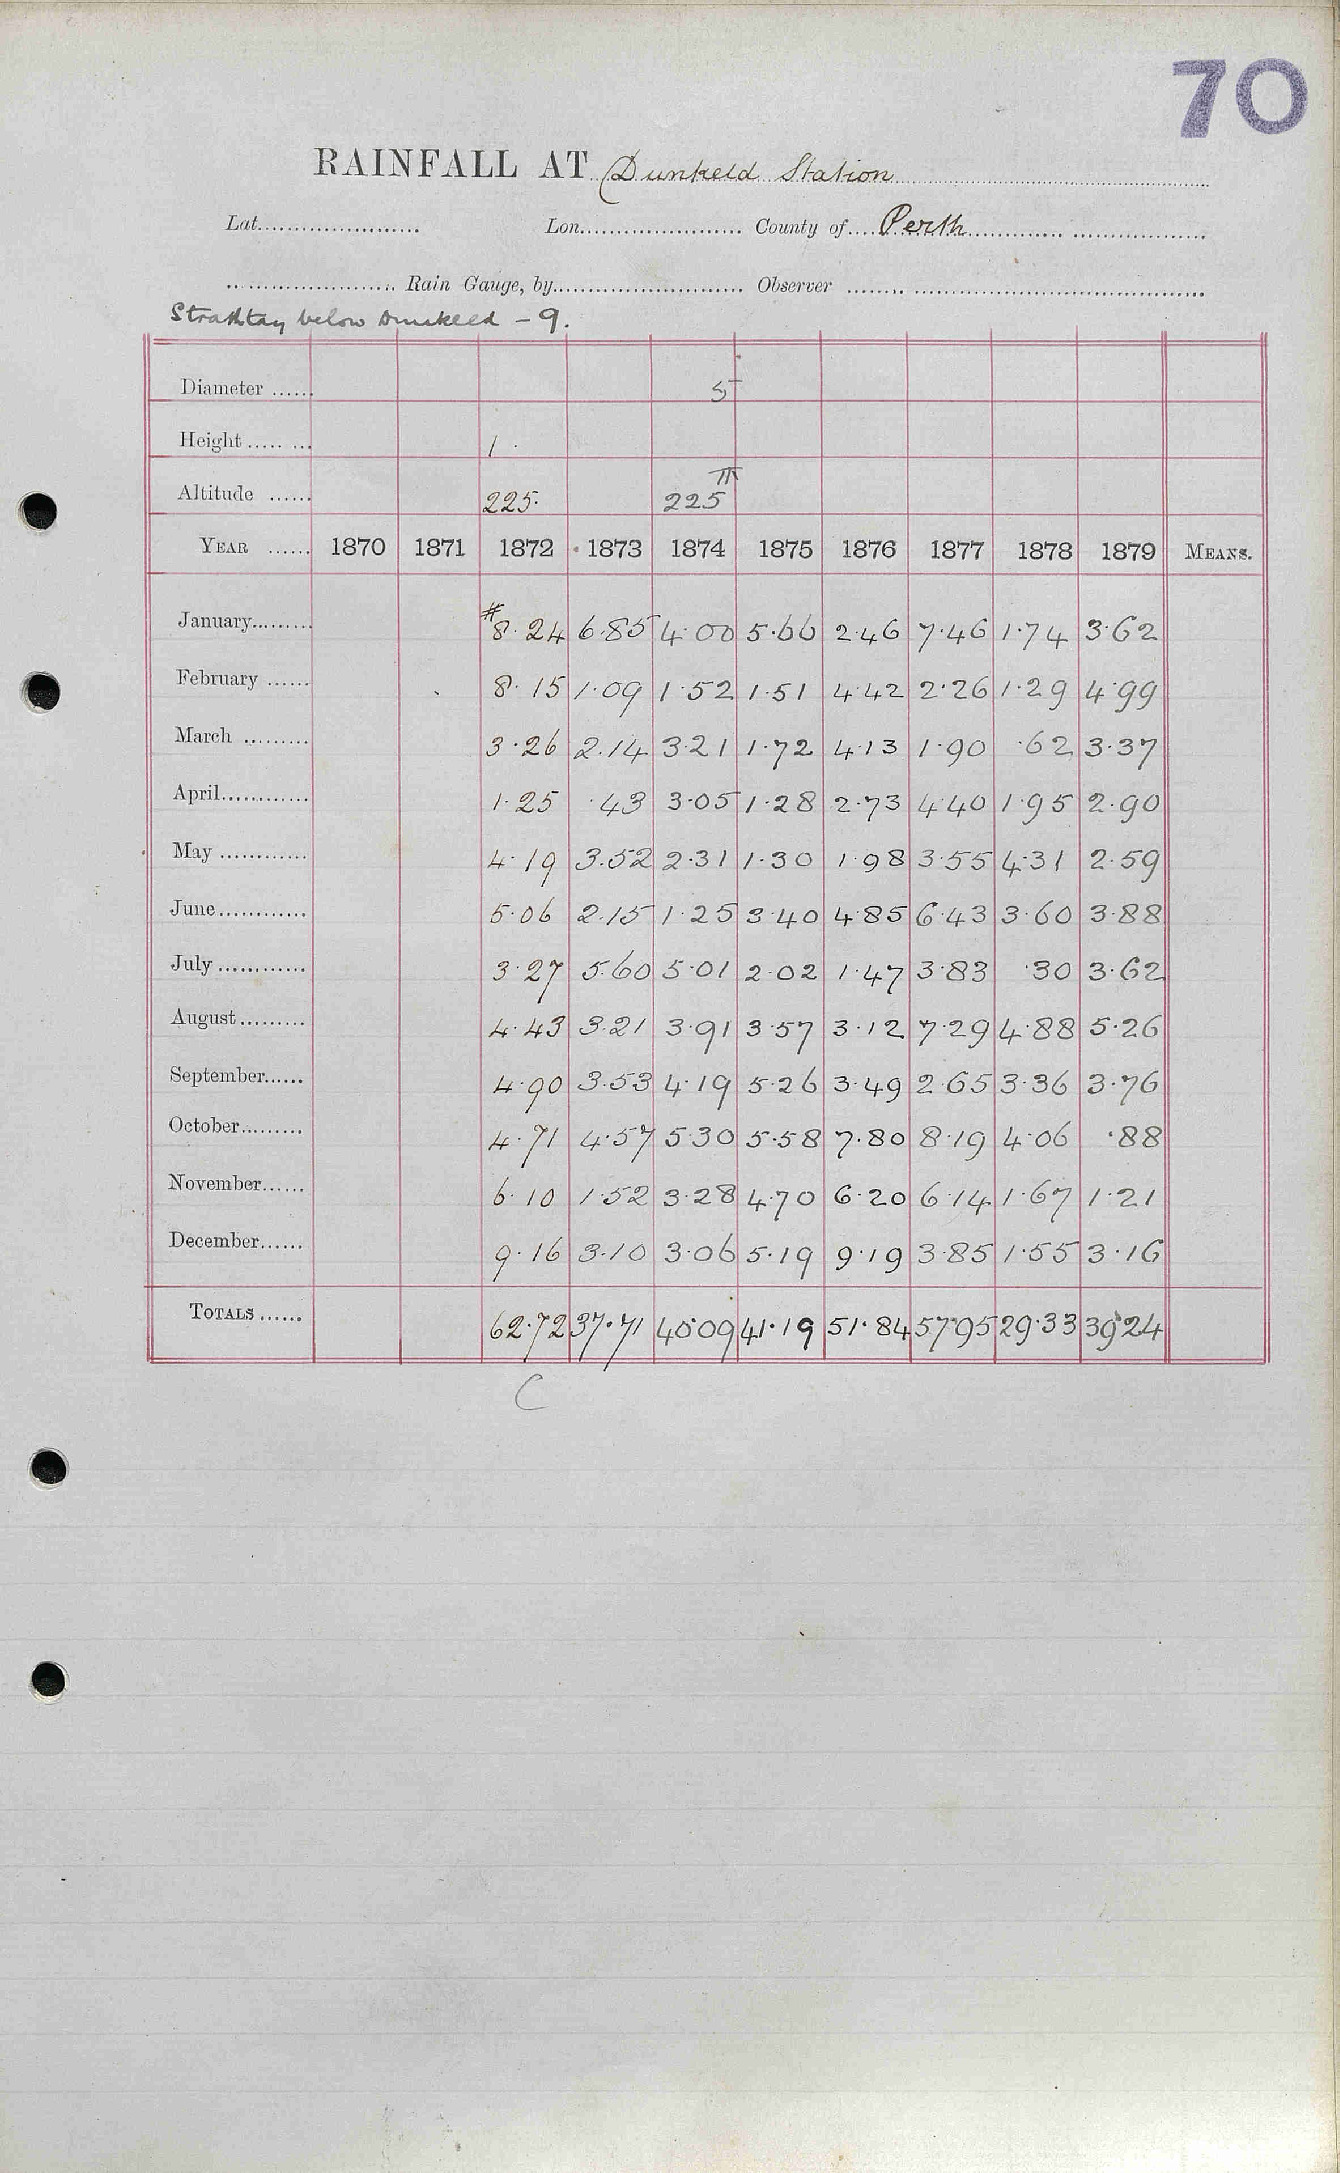 70
RAINFALL AT Dunkeld Station
Lat. Lon. County of Perth
Rain Gauge, by Observer
Strathtay below Dunkeld - 9.
Diameter 5
Height 1
Altitude 225 225 TR
YEAR 1870 1871 1872 1873 1874 1875 1876 1877 1878 1879 MEANS.
January #8.24 6.85 4.00 5.66 2.46 7.46 1.74 3.62
February 8.15 1.09 1.52 1.51 4.42 2.26 1.29 4.99
March 3.26 2.14 3.21 1.72 4.13 1.90 .62 3.37
April 1.25 .43 3.05 1.28 2.73 4.40 1.95 2.90
May 4.19 3.52 2.31 1.30 1.98 3.55 4.31 2.59
June 5.06 2.15 1.25 3.40 4.85 6.43 3.60 3.88
July 3.27 5.60 5.01 2.02 1.47 3.83 .30 3.62
August 4.43 3.21 3.91 3.57 3.12 7.29 4.88 5.26
September 4.90 3.53 4.19 5.26 3.49 2.65 3.36 3.76
October 4.71 4.57 5.30 5.58 7.80 8.19 4.06 .88
November 6.10 1.52 3.28 4.70 6.20 6.14 1.67 1.21
December 9.16 3.10 3.06 5.19 9.19 3.85 1.55 3.16
TOTALS 62.72 37.71 40.09 41.19 51.84 57.95 29.33 39.24
C